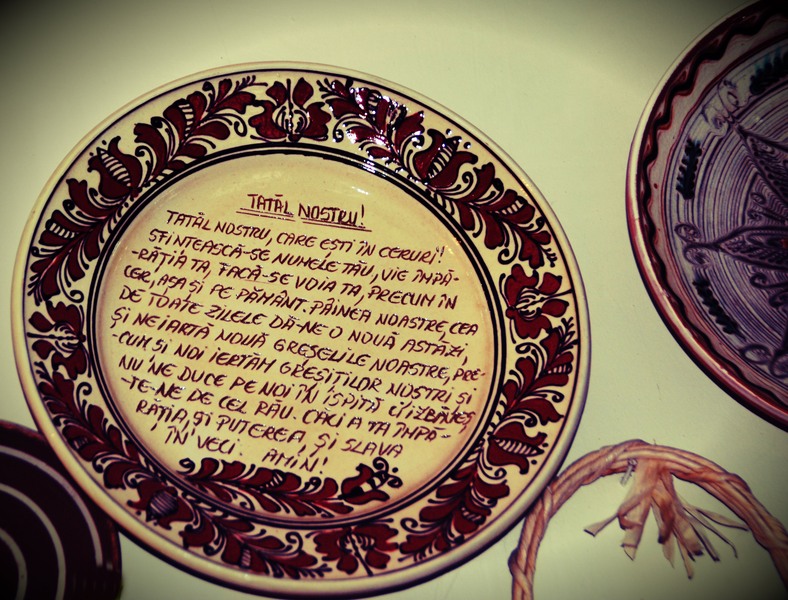 TATĂL NOSTRU!
TATĂL NOSTRU, CARE EȘTI ÎN CERURI!
SFINTEASCĂ-SE NUMELE TĂU, VIE ÎMPĂ-
-RĂȚIA TA, FACĂ-SE VOIA TA, PRECUM ÎN
CER, AȘA ȘI PE PĂMÂNT. PÂINEA NOASTRE, CEA
DE TOATE ZILELE DĂ-NE-O NOUĂ ASTĂZI,
ȘI NE IARTĂ NOUĂ GREȘELILE NOASTRE, PRE-
-CUM ȘI NOI IERTĂM GREȘIȚILOR NOSTRI ȘI
NU NE DUCE PE NOI ÎN ISPITĂ CI IZBĂVEȘ
-TE-NE DE CEL RĂU. CĂCI A TA ÎMPĂ-
RĂȚIA, ȘI PUTEREA, ȘI SLAVA
ÎN VECI. AMIN!